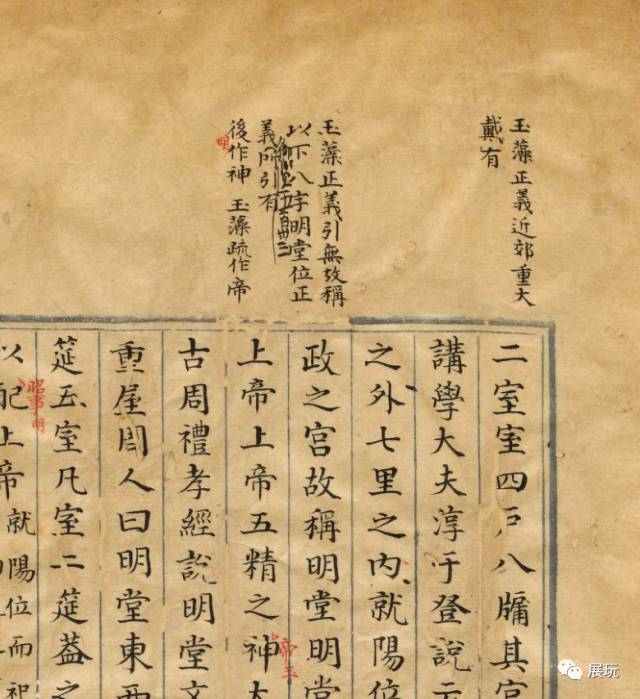 玉藻正義近郊重大
戴有
玉藻正義引無故稱
以下八字明堂位正
義所引有
後作神 玉藻疏作帝
明
二室室四戶八牖其宮
講學大夫淳于登說
之外七里之內就陽位
政之宮故稱明堂明堂
上帝上帝五精之神
帝五
古周禮孝經說明堂文
重屋周人曰明堂東西
筵五室凡室二筵蓋之
昭事明
以配上帝就陽位而祀
展玩